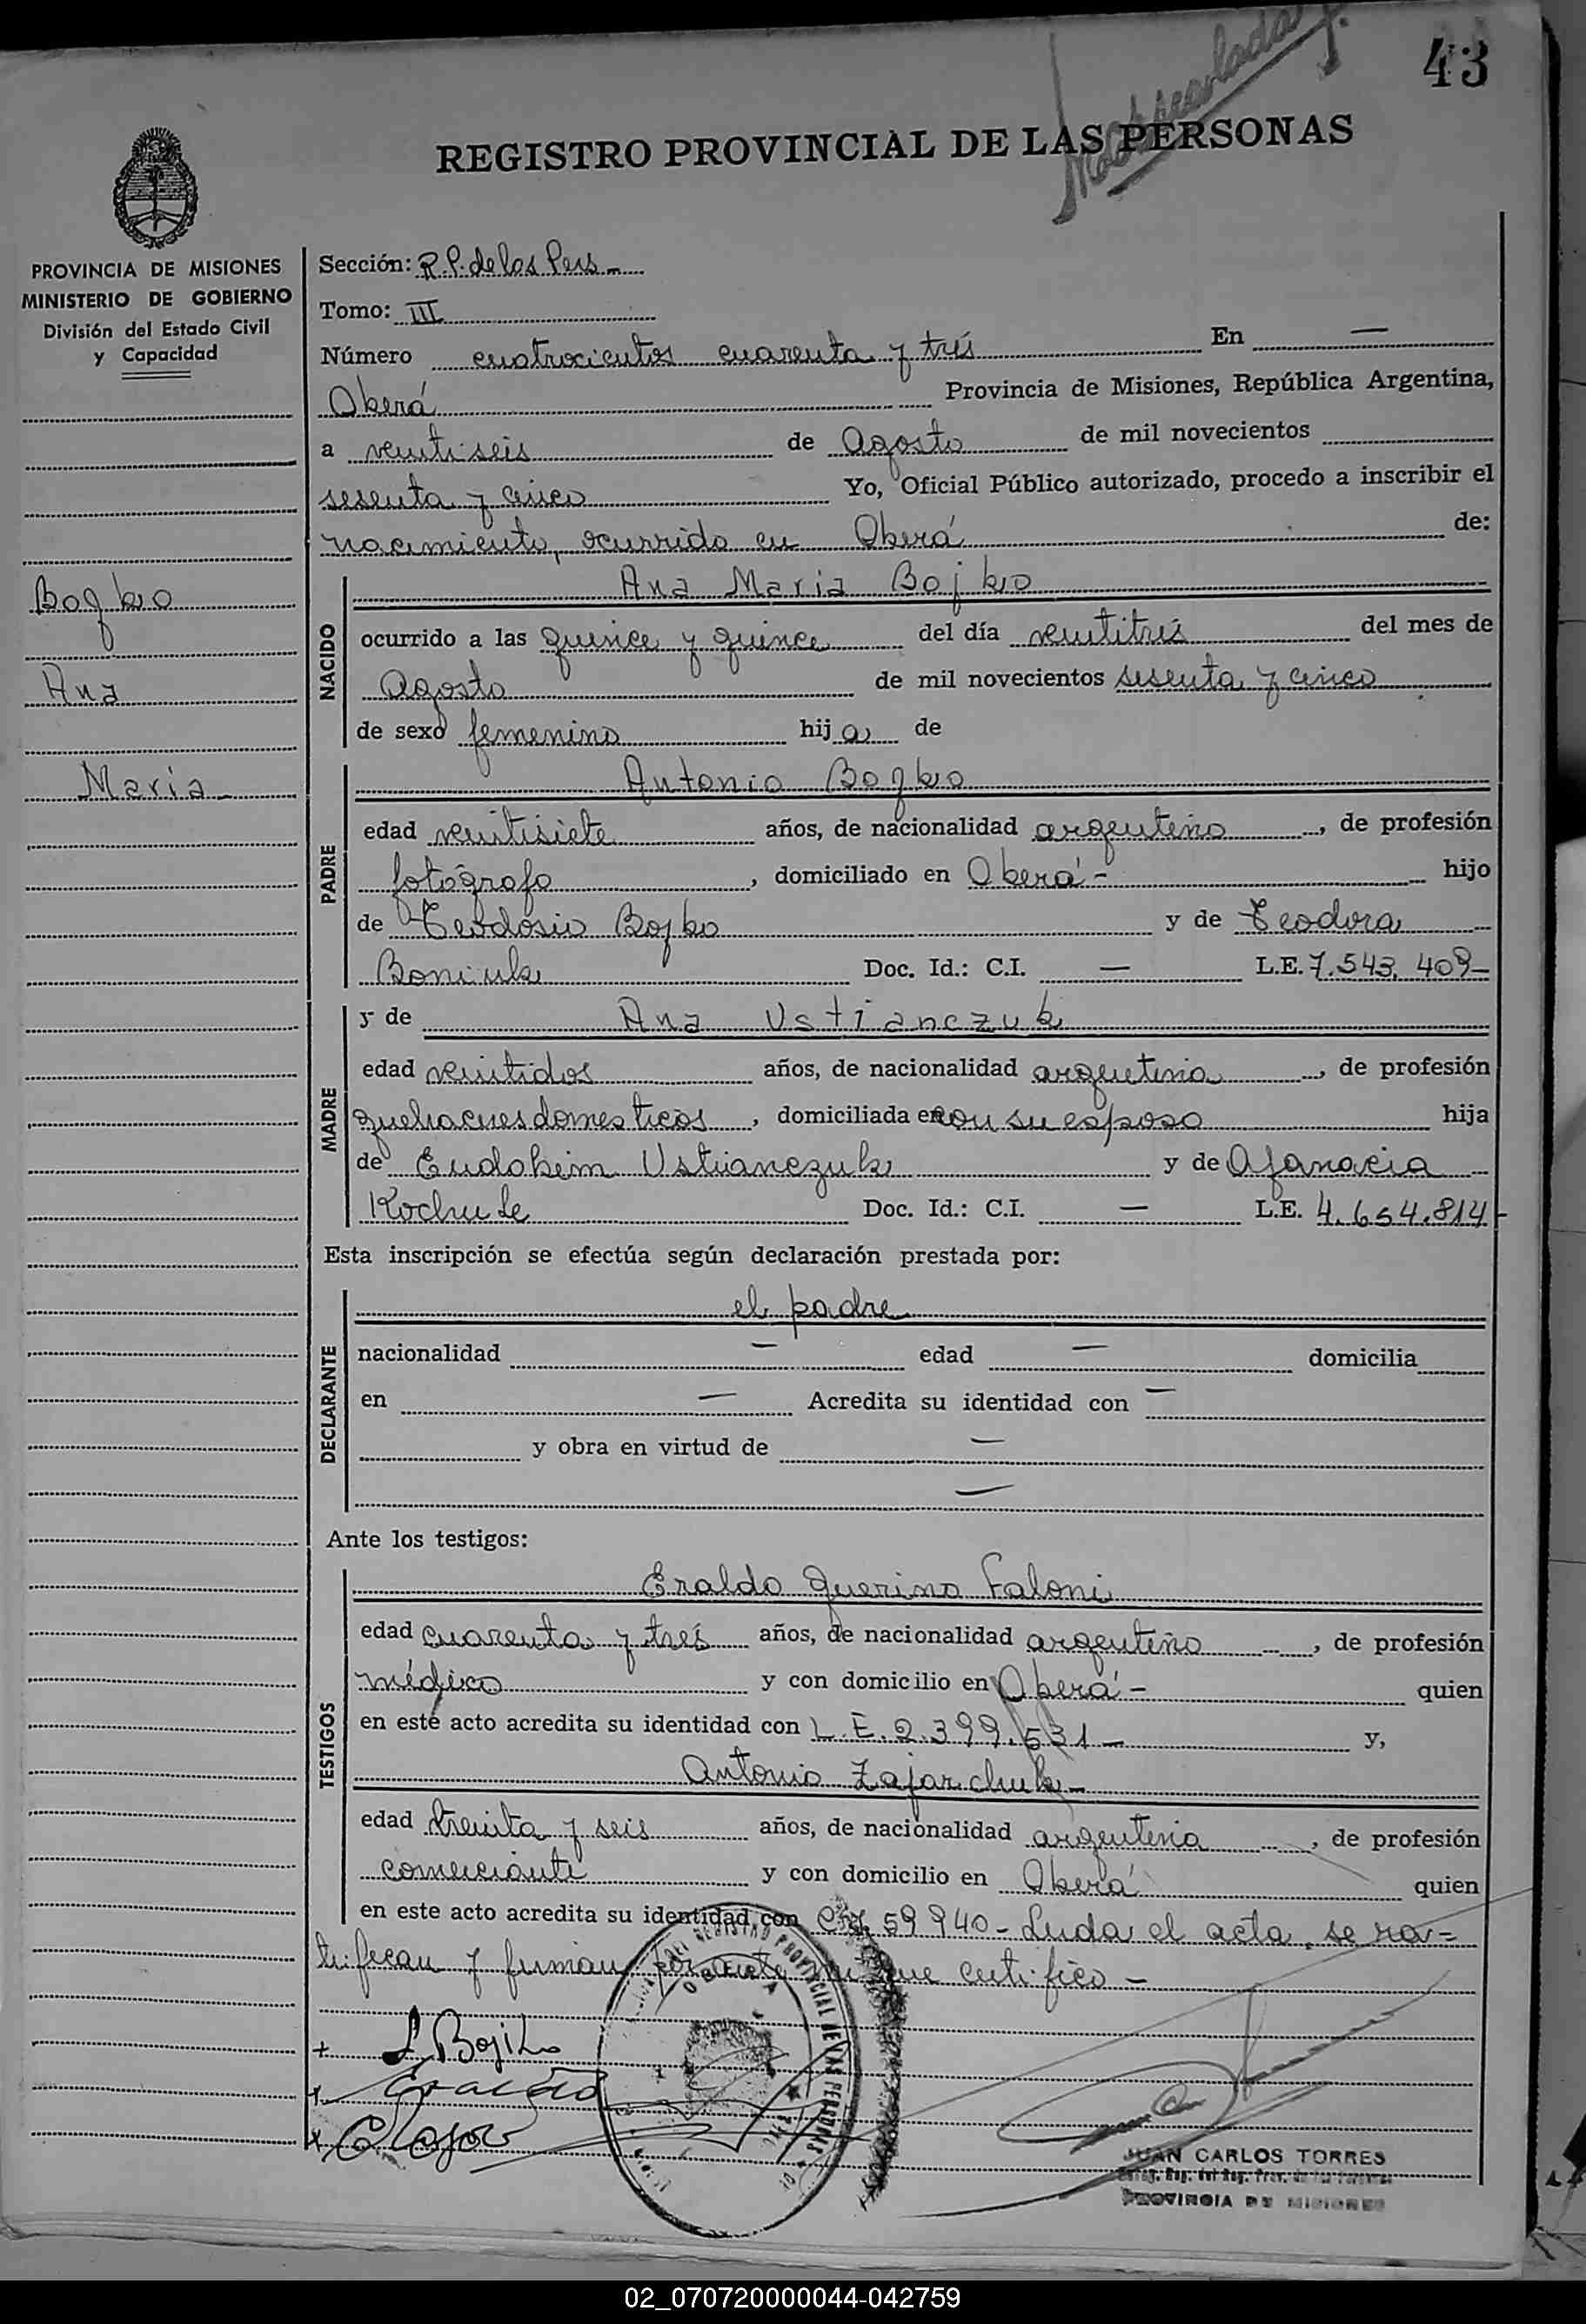 43
REGISTRO PROVINCIAL DE LAS PERSONAS
PROVINCIA DE MISIONES
MINISTERIO DE GOBIERNO
División del Estado Civil
y Capacidad
Bojko
Ana
Maria
Sección: R.P. de las Pers
Tomo: III
Número cuatrocientos cuarenta y trés En —
Oberá Provincia de Misiones, República Argentina,
a veintiseis de Agosto de mil novecientos
sesenta y cinco Yo, Oficial Público autorizado, procedo a inscribir el
nacimiento, ocurrido en Oberá de:
NACIDO
Ana Maria Bojko
ocurrido a las quince y quince del día veintitrés del mes de
Agosto de mil novecientos sesenta y cinco
de sexo femenino hija de
PADRE
Antonio Bojko
edad veintisiete años, de nacionalidad argentino, de profesión
fotógrafo, domiciliado en Oberá- hijo
de Teodosio Bojko y de Teodora
Boniuk Doc. Id.: C.I. — L.E. 7.543.409-
MADRE
y de Ana Ustianczuk
edad veintidos años, de nacionalidad argentina, de profesión
quehaceres domesticos, domiciliada en con su esposo hija
de Eudokim Ustianczuk y de Afanacia
Doc. Id.: C.I. — L.E. 4.654.814-
Esta inscripción se efectúa según declaración prestada por:
DECLARANTE
el padre
nacionalidad — edad — domicilia
en — Acredita su identidad con —
y obra en virtud de —
—
Ante los testigos:
TESTIGOS
Eraldo Querino Faloni
edad cuarenta y tres años, de nacionalidad argentino, de profesión
médico y con domicilio en Oberá- quien
en este acto acredita su identidad con L.E. 2.399.531- y,
Antonio Zajarchuk-
edad treinta y seis años, de nacionalidad argentina, de profesión
comerciante y con domicilio en Oberá quien
en este acto acredita su identidad con 59940- Leida el acta, se ra=
tifican y firman por ante mi que certifico-
A Bojko
OBERA
REGISTRO PROVINCIAL DE LAS PERSONAS
JUAN CARLOS TORRES
PROVINCIA DE MISIONES
02_070720000044-042759